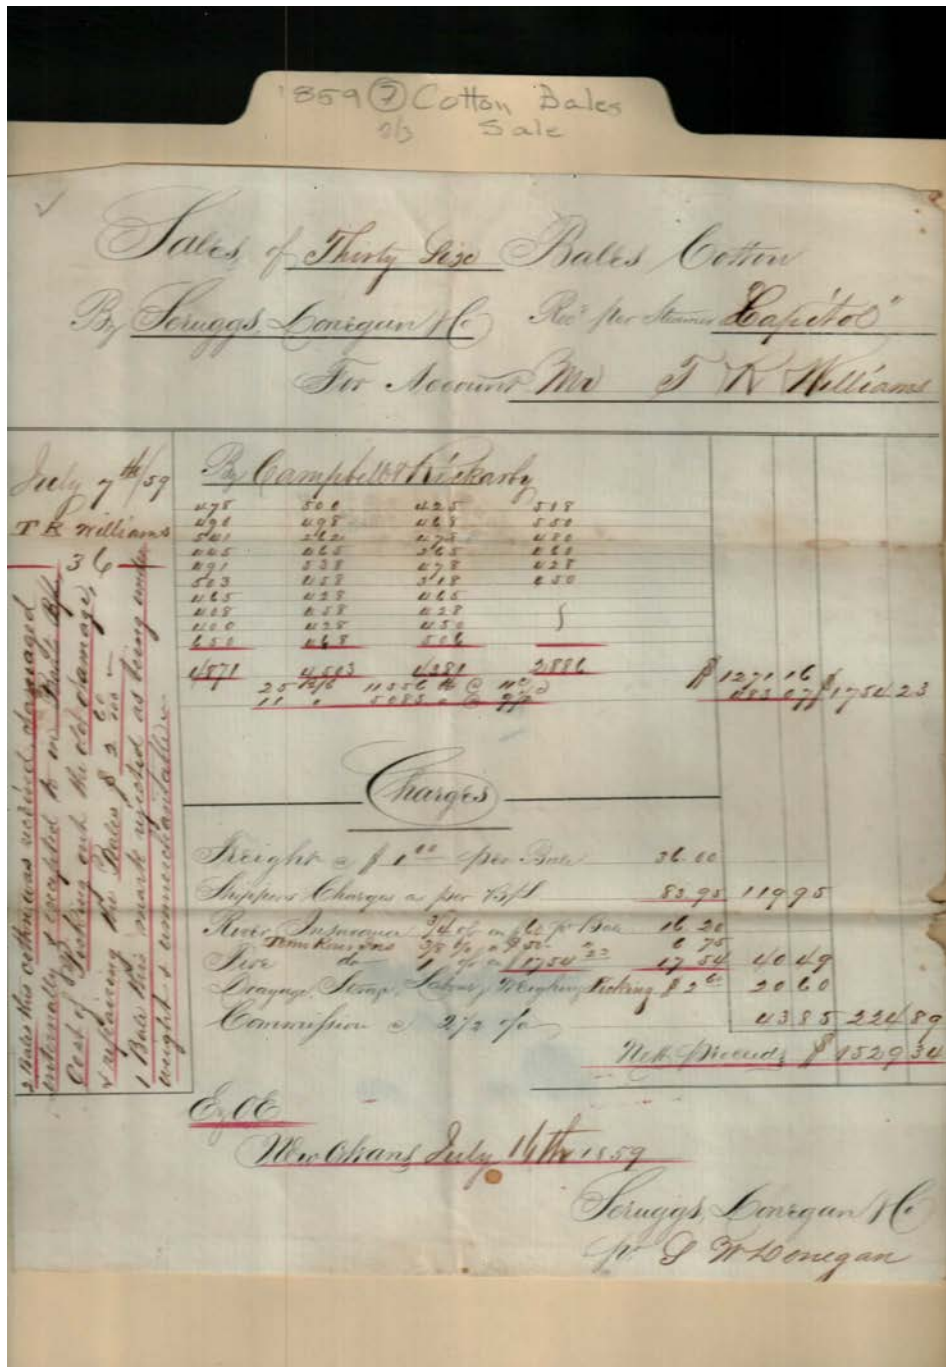 1859 (7) Cotton Bales
Sale
Sales of Thirty Six Bales Cotton
By Scruggs, Donegan & Co Recd per Steamer "Capitol"
For Account Mr T K Williams
July 7th/59
T K Williams
36
2 Bales this
received damaged
internally & excepted to in
Cost of picking out the
damage,
& repairing the Bales $2 60
1 Bale this mark rejected as being under
weight & unmerchantable
By Campbell & Rickarby
478 500 425 518
490 498 468 550
480
465
491 538 478 428
503 458 318 450
465 428 465
408 458 428
400 428 450
650 468 506
4871 4503 4381 2886
25 11556 lb @ 11c $1271 16
11 " 5085 " @ 483 07 $1754 23
Charges
Freight @ $1 00 per Bale 36.00
Shippers Charges as per B/L 83 95 119 95
River Insurance 3/4 o/o on per Bale 16 20
3/8 o/o 6 75
Fire do 1 o/o on $1754 23 17 54 40 49
Drayage, Storage, Labour, Weighing Picking $2 60 20 60
Commission @ 2 1/2 o/o 43 85 224 89
Nett proceeds $1529 34
E, O E
New Orleans July 16th 1859
Scruggs, Donegan & Co
pr S W Donegan